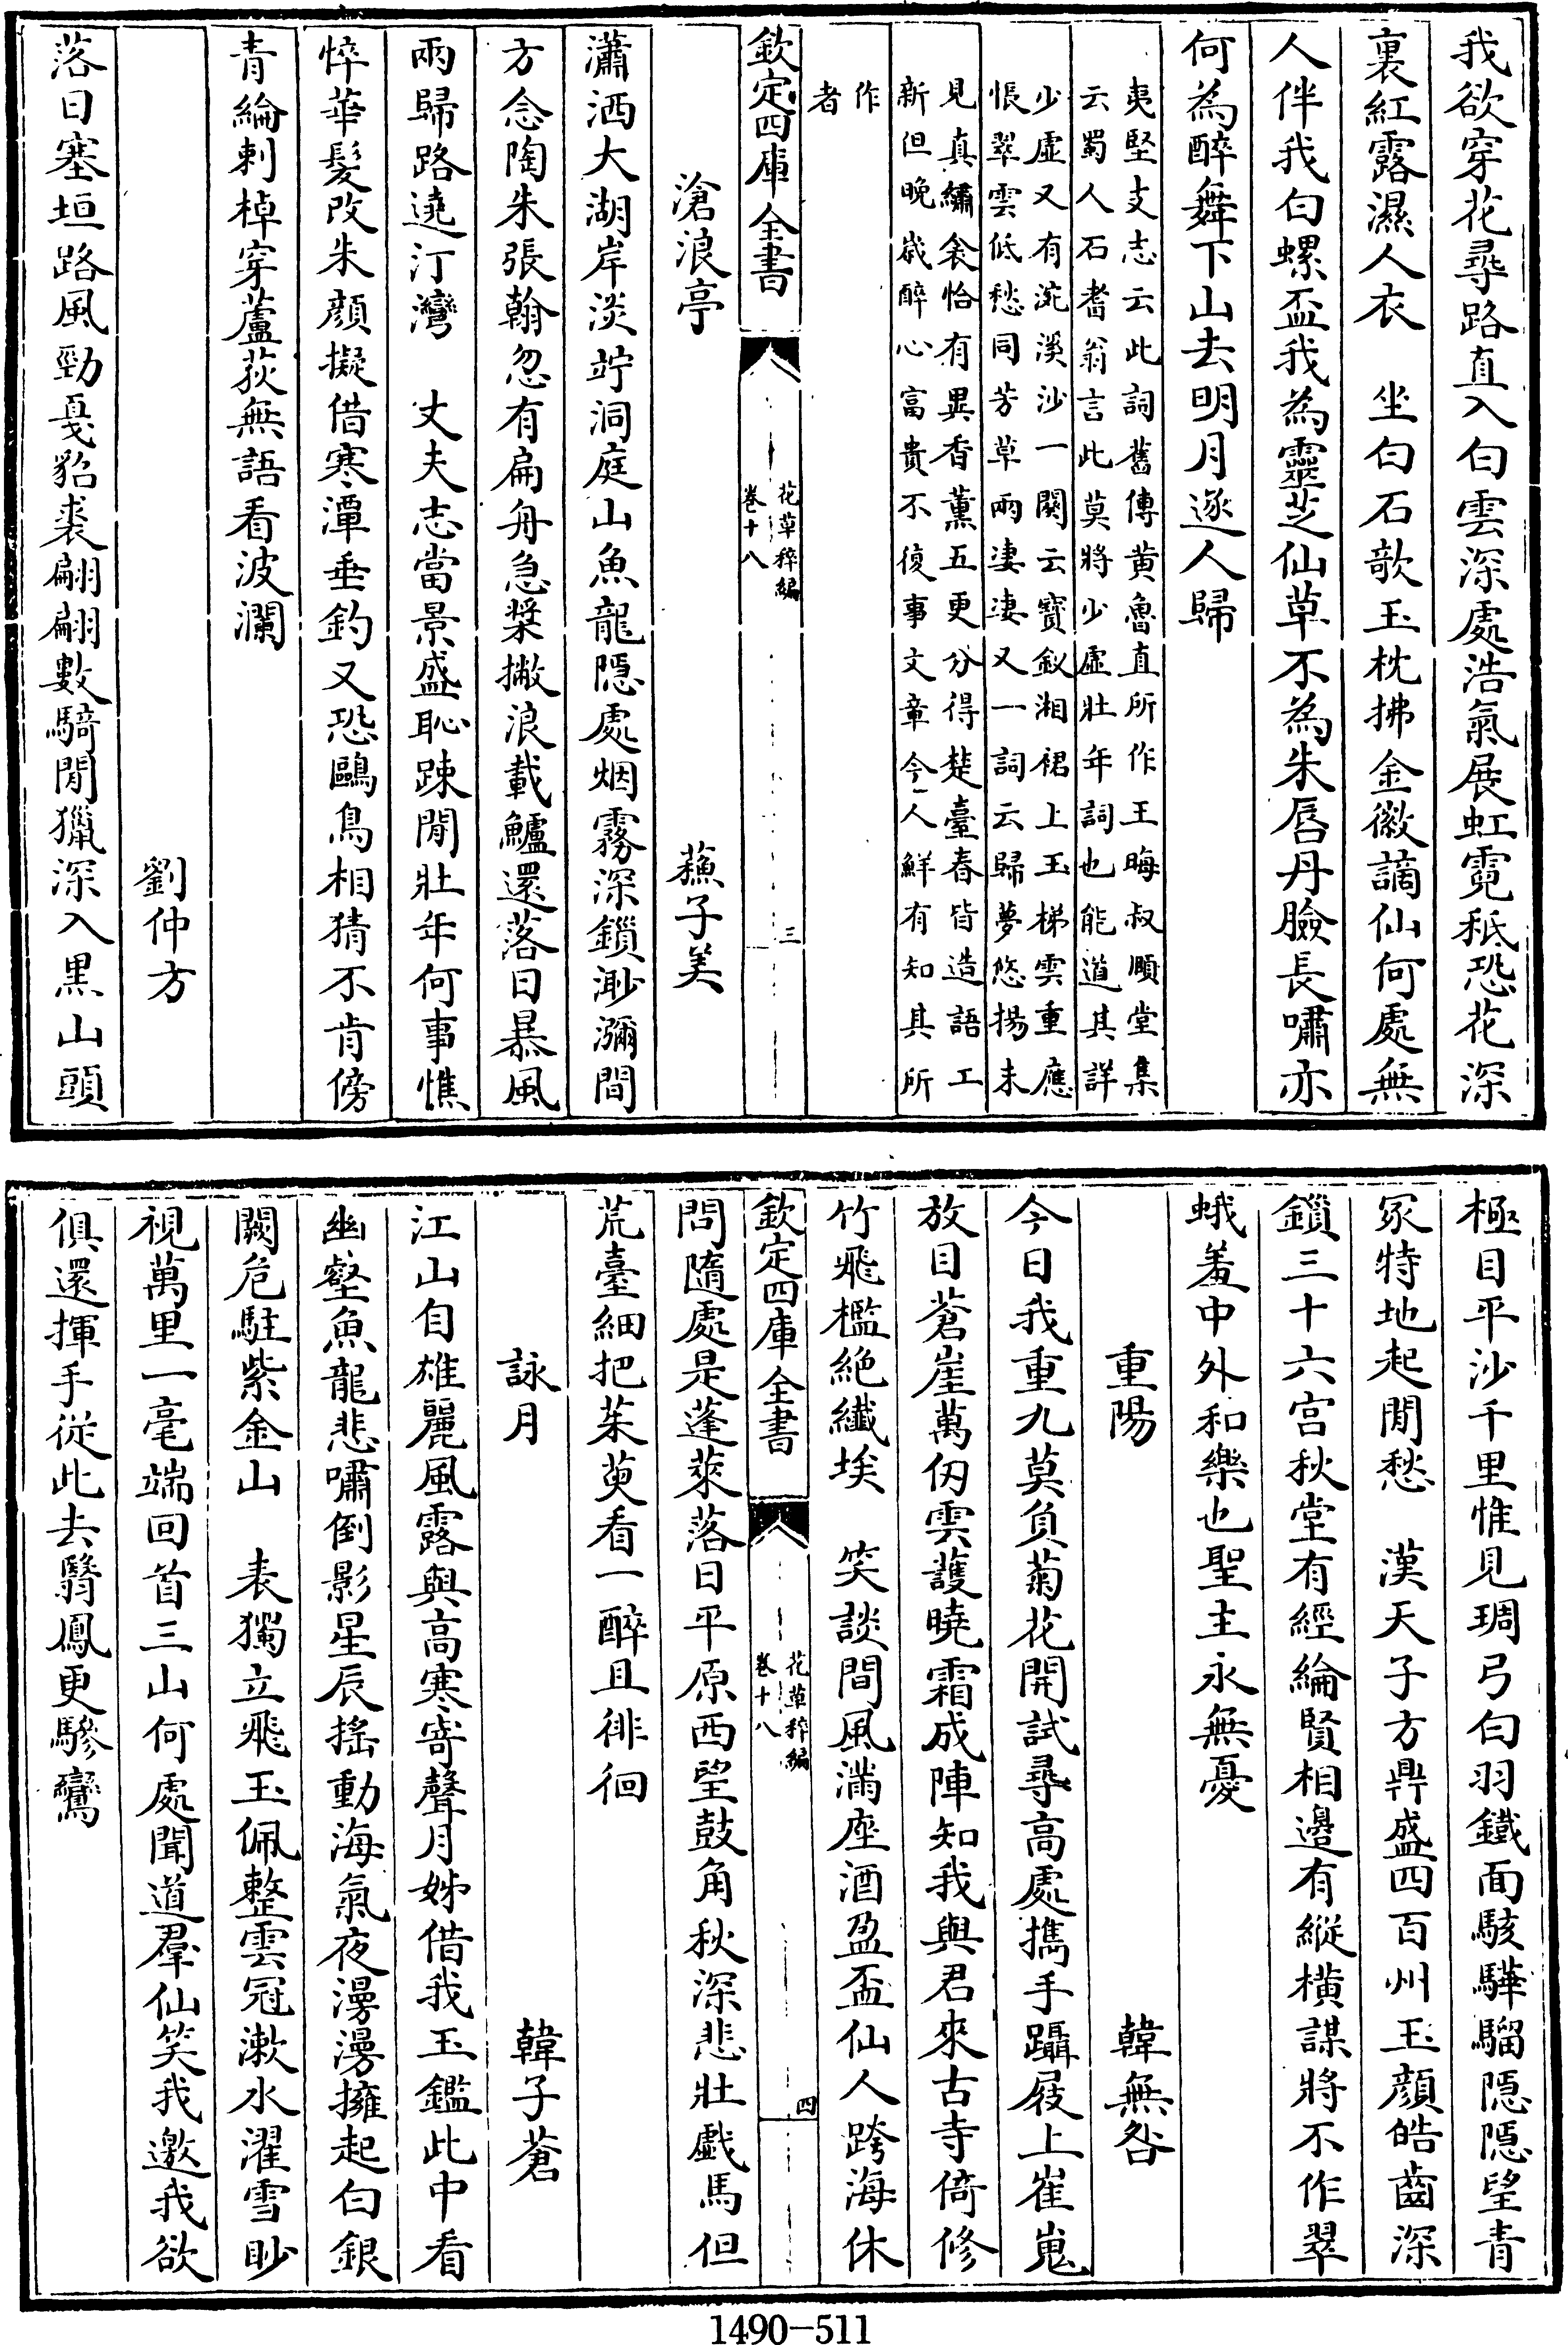 我欲穿花尋路直入白雲深處浩氣展虹霓秪恐花深
裏紅露濕人衣　坐白石歌玉枕拂金徽謫仙何處無
人伴我白螺盃我為靈芝仙草不為朱唇丹臉長嘯亦
何為醉舞下山去明月逐人歸
夷堅支志云此詞舊傳黄魯直所作王晦叔頤堂集
云蜀人石耆翁言此莫將少虚壯年詞也能道其詳
少虚又有浣溪沙一闋云寶釵湘裙上玉梯雲重應
悵翠雲低愁同芳草兩凄凄又一詞云歸夢悠揚未
見真繡衾恰有異香薰五更分得楚臺春皆造語工
新但晚嵗醉心富貴不復事文章今人鮮有知其所
作
者
欽定四庫全書
花草稡編
卷十八
三
滄浪亭　蘓子美
瀟洒大湖岸淡竚洞庭山魚龍隠處烟霧深鎻渺瀰間
方念陶朱張翰忽有扁舟急槳撇浪載鱸還落日暴風
雨歸路遶汀灣　丈夫志當景盛恥踈閒壯年何事憔
悴華髮改朱顔擬借寒潭垂釣又恐鷗鳥相猜不肯傍
青綸刺棹穿蘆荻無語看波瀾
劉仲方
落日塞垣路風勁戞貂裘翩翩數騎閒獵深入黒山頭
極目平沙千里惟見琱弓白羽鐵面駭驊騮隠隠望青
冢特地起閒愁　漢天子方鼎盛四百州玉顔皓齒深
鎻三十六宫秋堂有經綸賢相邉有縱横謀將不作翠
蛾羞中外和樂也聖主永無憂
重陽　韓無咎
今日我重九莫負菊花開試尋高處擕手躡屐上崔嵬
放目蒼崖萬仭雲護曉霜成陣知我與君來古寺倚修
竹飛檻絶纎埃　笑談間風滿座酒盈盃仙人跨海休
欽定四庫全書
花草稡編
卷十八
四
問隨處是蓬萊落日平原西望鼓角秋深悲壯戯馬但
荒臺細把茱萸看一醉且徘徊
詠月　韓子蒼
江山自雄麗風露與高寒寄聲月姊借我玉鑑此中看
幽壑魚龍悲嘯倒影星辰揺動海氣夜漫漫擁起白銀
闕危駐紫金山　表獨立飛玉佩整雲冠漱水濯雪眇
視萬里一毫端回首三山何處聞道羣仙笑我邀我欲
俱還揮手從此去翳鳳更驂鸞
1490-511